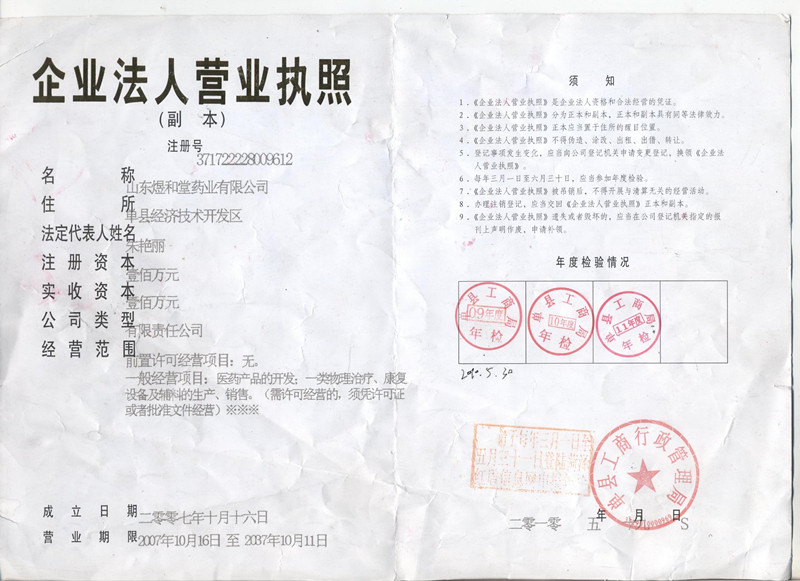 企业法人营业执照
(副 本)
注册号 371722228009612
名称 山东煜和堂药业有限公司
住所 单县经济技术开发区
法定代表人姓名 朱艳丽
注册资本 壹佰万元
实收资本 壹佰万元
公司类型 有限责任公司
经营范围
前置许可经营项目：无。
一般经营项目：医药产品的开发；一类物理治疗、康复
设备及辅料的生产、销售。（需许可经营的，须凭许可证
或者批准文件经营）※※※
成立日期 二零零七年十月十六日
营业期限 2007年10月16日 至 2037年10月11日
须 知
1．《企业法人营业执照》是企业法人资格和合法经营的凭证。
2．《企业法人营业执照》分为正本和副本，正本和副本具有同等法律效力。
3．《企业法人营业执照》正本应当置于住所的醒目位置。
4．《企业法人营业执照》不得伪造、涂改、出租、出借、转让。
5．登记事项发生变化，应当向公司登记机关申请变更登记，换领《企业法
人营业执照》。
6．每年三月一日至六月三十日，应当参加年度检验。
7．《企业法人营业执照》被吊销后，不得开展与清算无关的经营活动。
8．办理注销登记，应当交回《企业法人营业执照》正本和副本。
9．《企业法人营业执照》遗失或者毁坏的，应当在公司登记机关指定的报
刊上声明作废，申请补领。
年度检验情况
单县工商局
09年度
年检
单县工商局
10年度
年检
单县工商局
11年度
年检
2010.5.30
单县工商行政管理局
二零一零 年 五 月 日